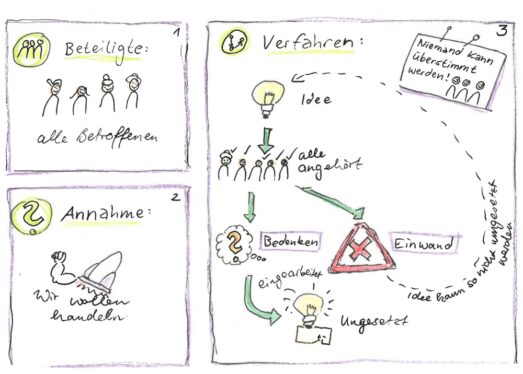 1
Beteiligte:
alle Betroffenen
2
Annahme:
Wir wollen
handeln
3
Verfahren:
Niemand kann
überstimmt
werden!
Idee
alle
angehört
Bedenken
Einwand
eingearbeitet
Umgesetzt
Idee kann so nicht umgesetzt
werden